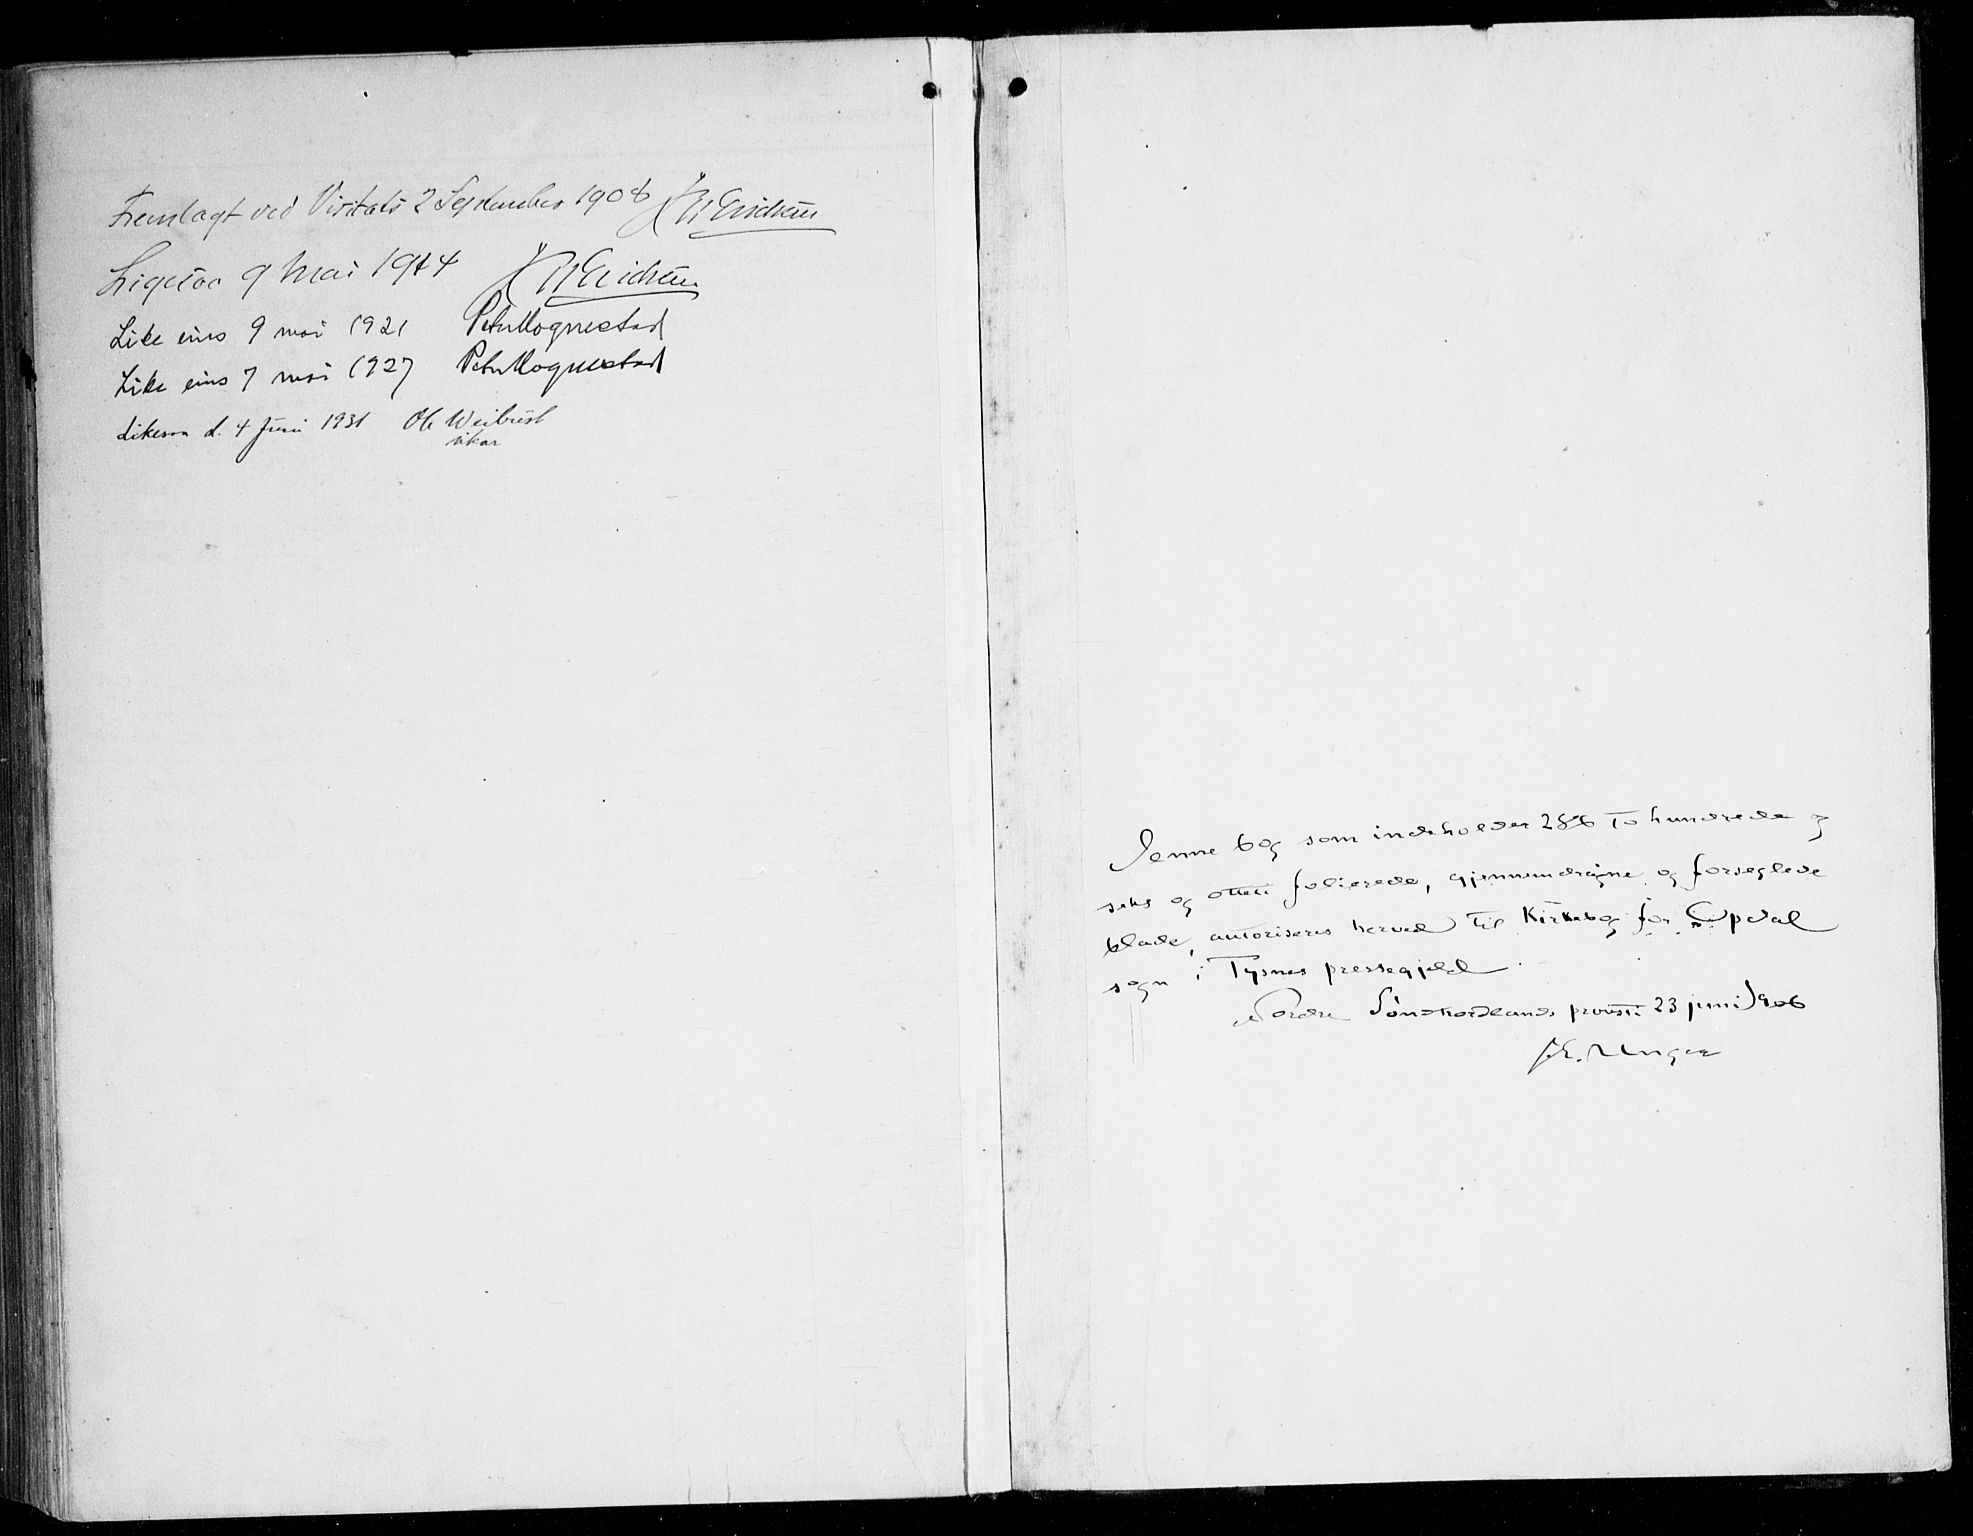 Fremlagt ved Visitats 2 September 1908 Erichsen
Ligesaa 9 Mai 1914 Erichsen
Like eins 9 mai 1921 Peter Hognestad
Like eins 7 mai 1927 Peter Hognestad
Likesaa d. 4 Juni 1931 Ole Weibust
vikar
Denne bog som indeholder 286 To hundrede og
seks og otteti folierede, gjennemdragne og forseglede
blade, autoriseres herved til Kirkebog for Opdal
sogn i Tysnes prestegjeld
Nordre Søndhordlands provsti 23 juni 1906
Unger